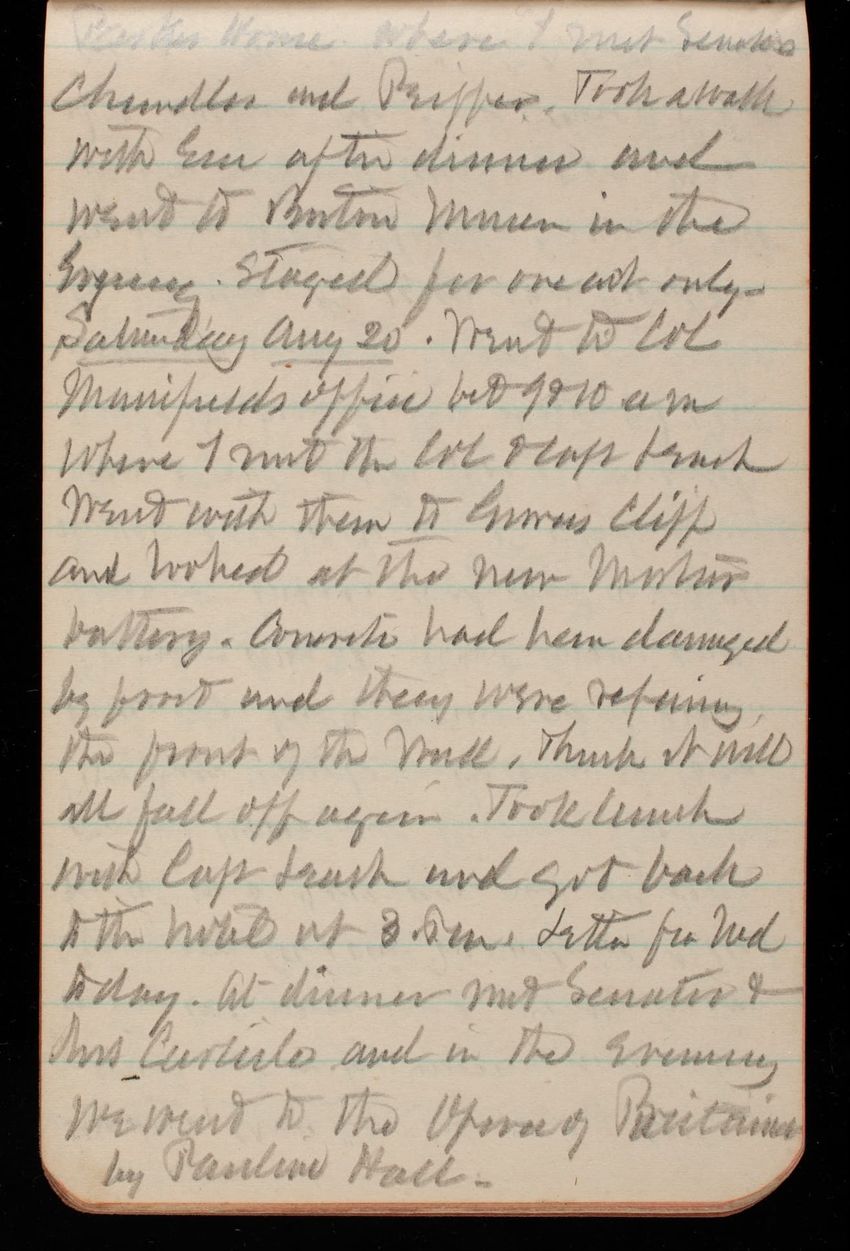 Parker House where I met Senators
Chandler and Peiffer. Took a walk
with Gen after dinner and
went to Boston Museum in the
Evening. Stayed for one act only.
Saturday Aug 20. Went to Col
Mansfields office bet 9 & 10 am
where I met the Col & Capt
Went with them to Grovers Cliff
and looked at the new Mortar
battery. Concrete had been damaged
by frost and they were refacing
the front of the Wall. Think it will
all fall off again. Took lunch
with Capt and got back
to the hotel at 3. P.m. Letter fro Ned
today. At dinner met Senator &
Mrs Carlisle and in the evening
we went to the Opera of Puritania
by Pauline Hall.